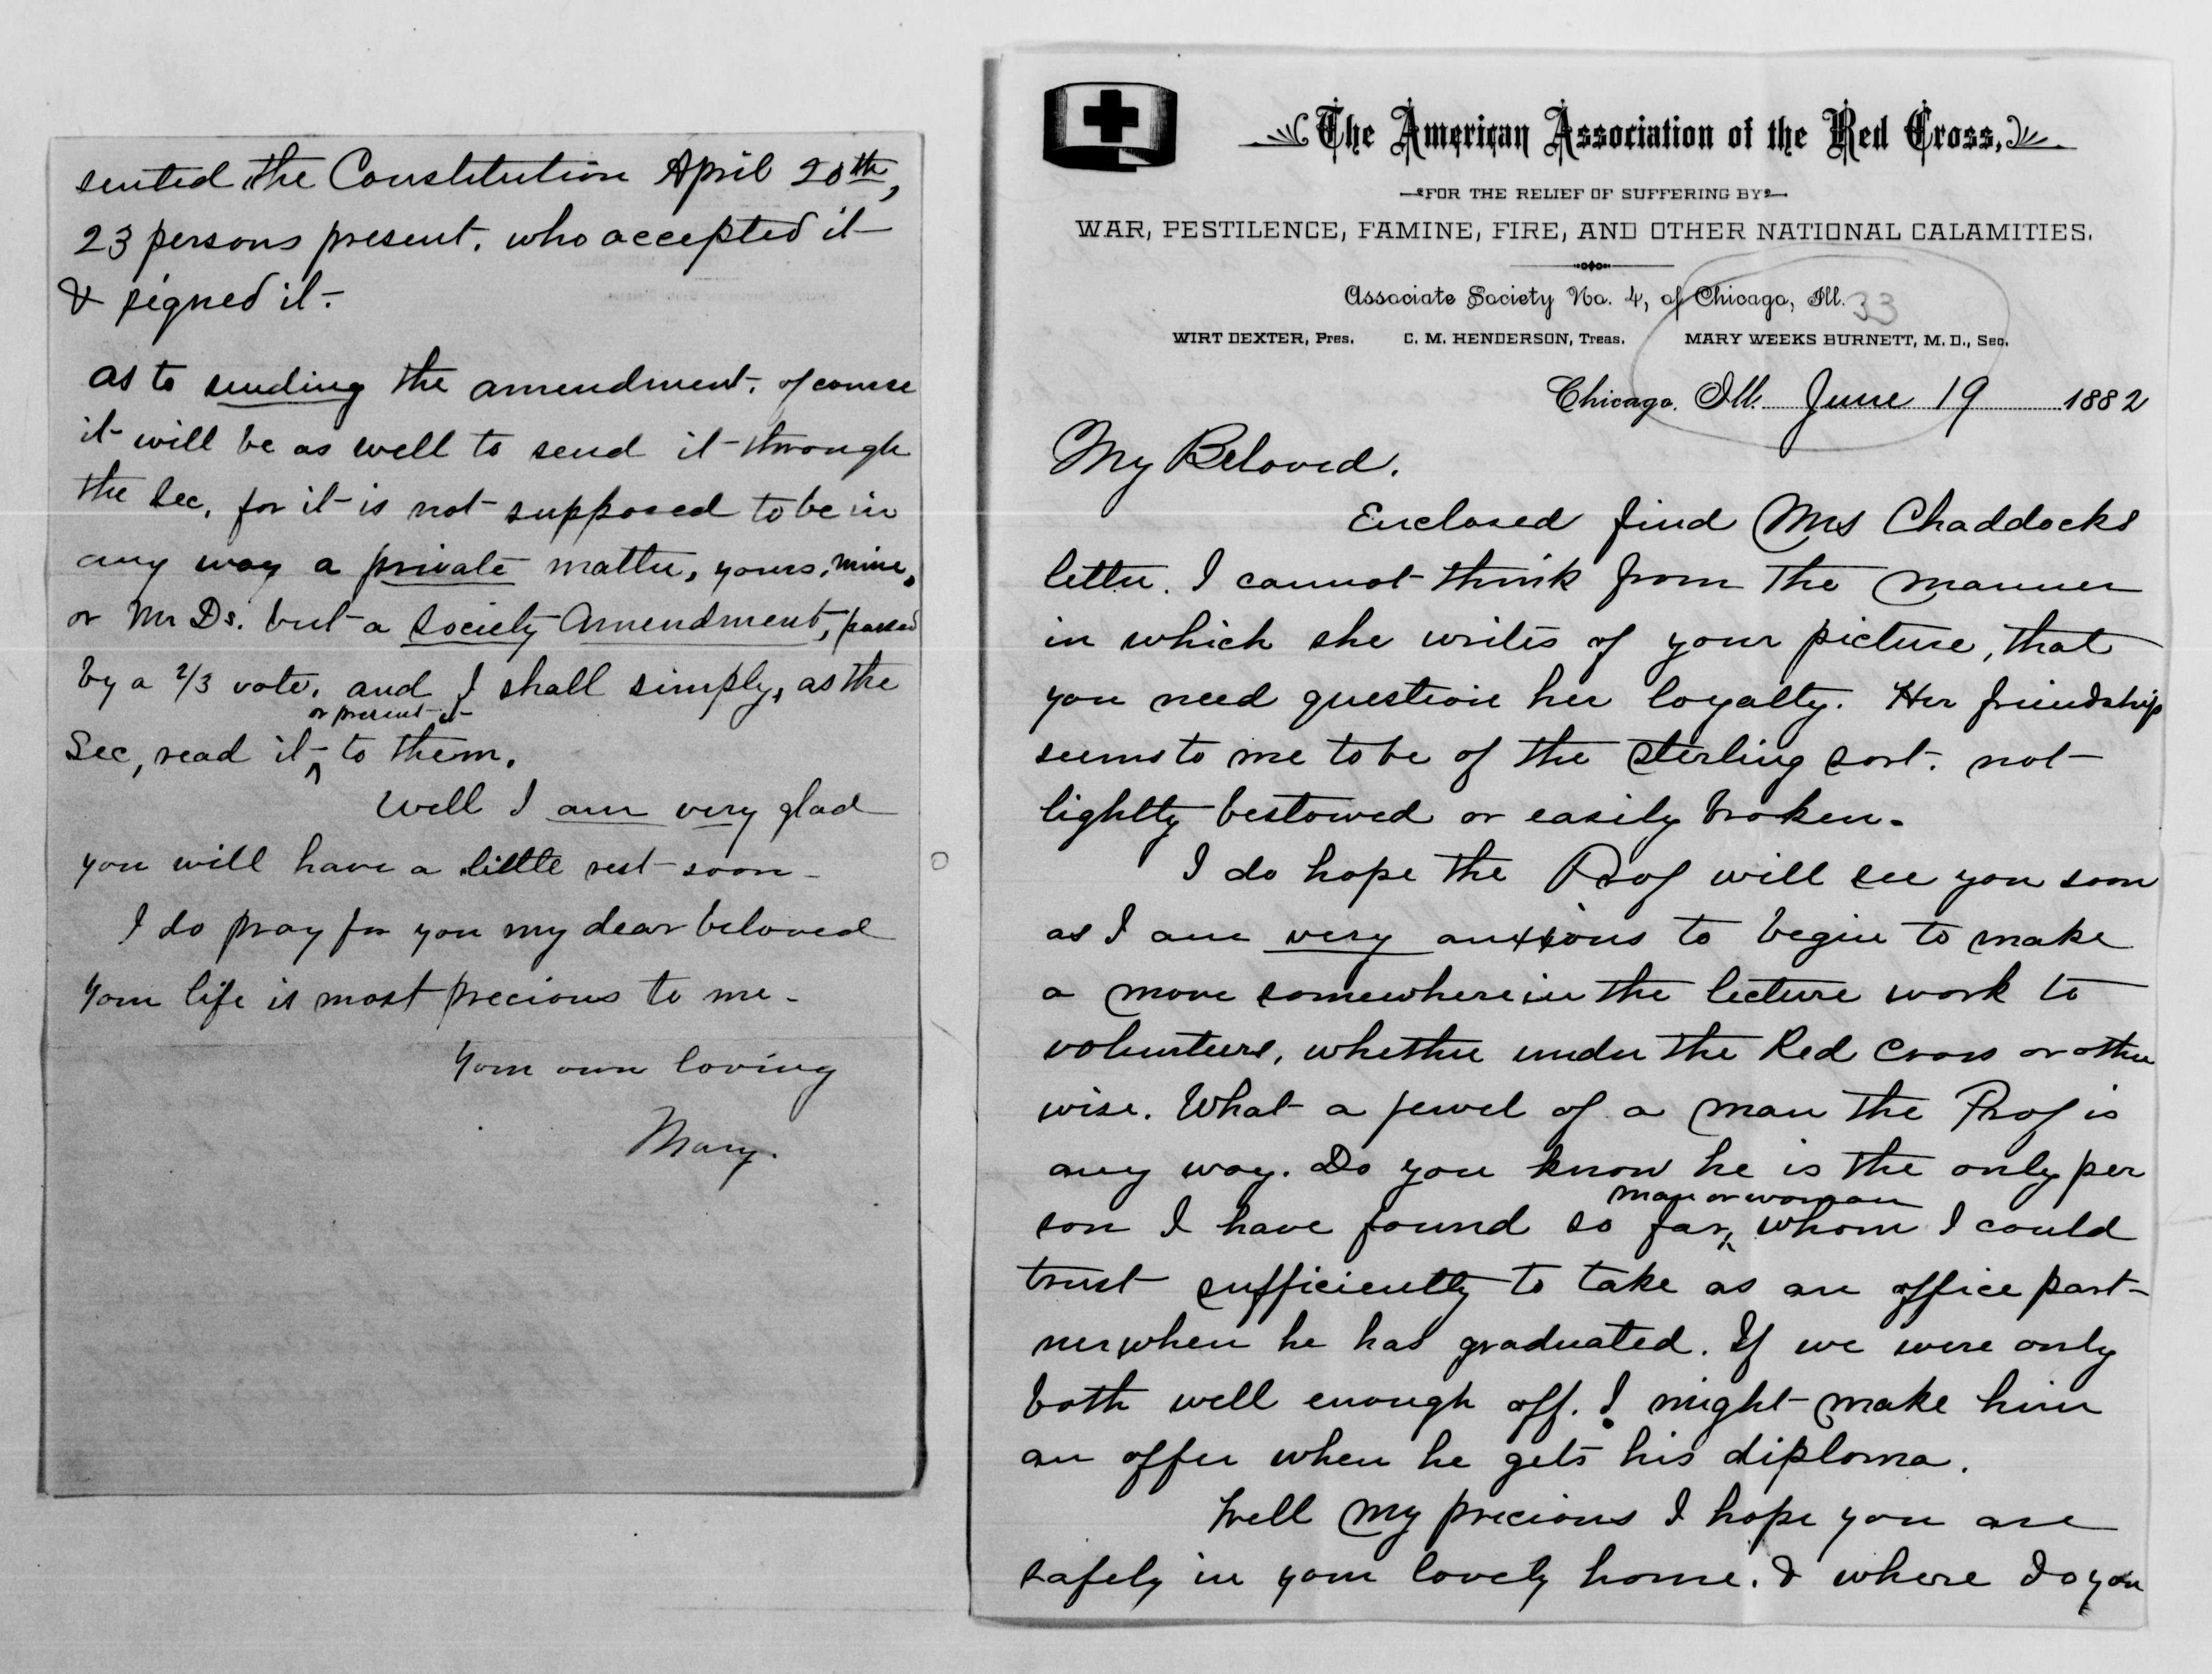 sented the Constitution April 20th,
23 persons present, who accepted it
& signed it.
as to sending the amendment, of course
it will be as well to send it through
the Sec, for it is not supposed to be in
any way a private matter, yours, mine,
or Mr Ds. but a Society Amendment, passed
by a 2/3 vote, and I shall simply, as the
or present it
Sec, read it ^ to them.
Well I am very glad
you will have a little rest soon -
I do pray for you my dear beloved
Your life is most precious to me -
Your own loving
Mary.
The American Association of the Red Cross,
FOR THE RELIEF OF SUFFERING BY
WAR, PESTILENCE, FAMINE, FIRE, AND OTHER NATIONAL CALAMITIES.
Associate Society No. 4, of Chicago, Ill. 33
WIRT DEXTER, Pres. C. M. HENDERSON, Treas. MARY WEEKS BURNETT, M. D., Sec.
Chicago, Ill. June 19 1882
My Beloved.
Enclosed find Mrs Chaddocks
letter. I cannot think from the manner
in which she writes of your picture, that
you need question her loyalty. Her friendship
seems to me to be of the sterling sort, not
lightly bestowed or easily broken.
I do hope the Prof will see you soon
as I am very anxious to begin to make
a move somewhere in the lecture work to
volunteers, whether under the Red Cross or other
wise. What a jewel of a man the Prof is
any way. Do you know he is the only per
man or woman
son I have found so far, ^ whom I could
trust sufficiently to take as an office part-
ner when he has graduated. If we were only
both well enough off. I might make him
an offer when he gets his diploma.
Well my precious I hope you are
safely in your lovely home. & where do you